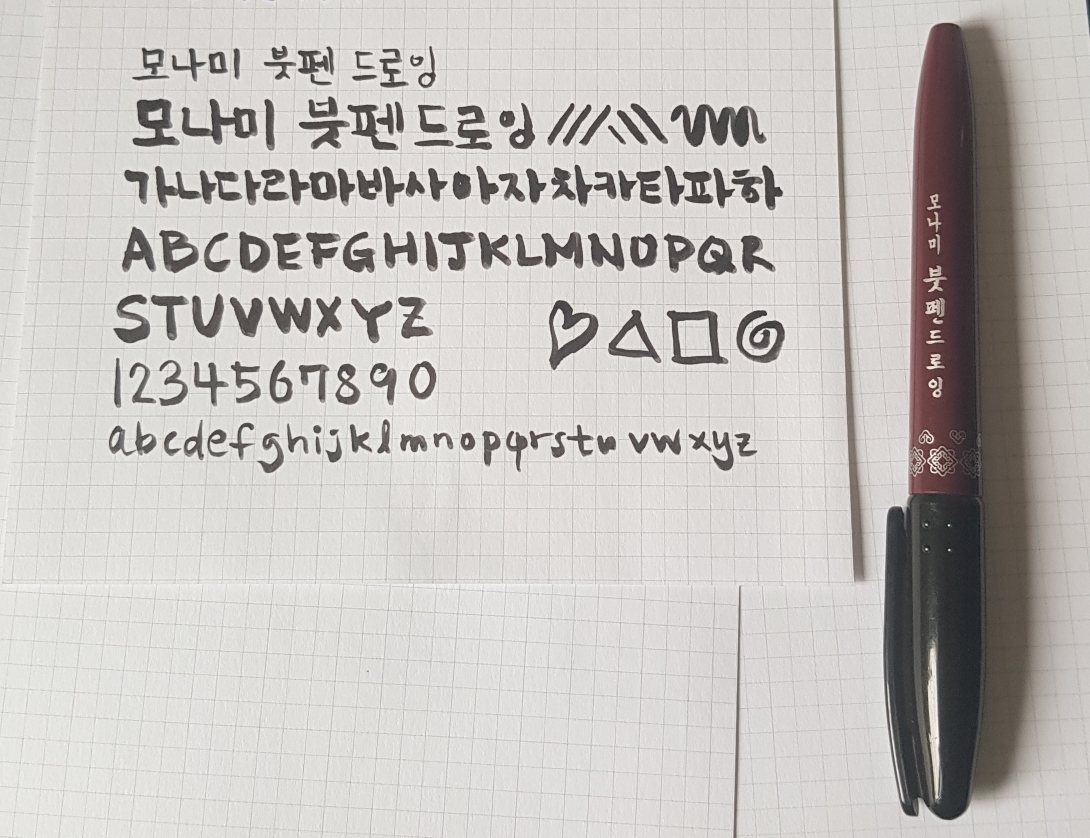 모나미 붓펜 드로잉
모나미 붓펜 드로잉
가나다라마바사아자차카타파하
ABCDEFGHIJKLMNOPQR
STUVWXYZ
1234567890
abcdefghijklmnopqrstuvwxyz
모나미 붓펜드로잉